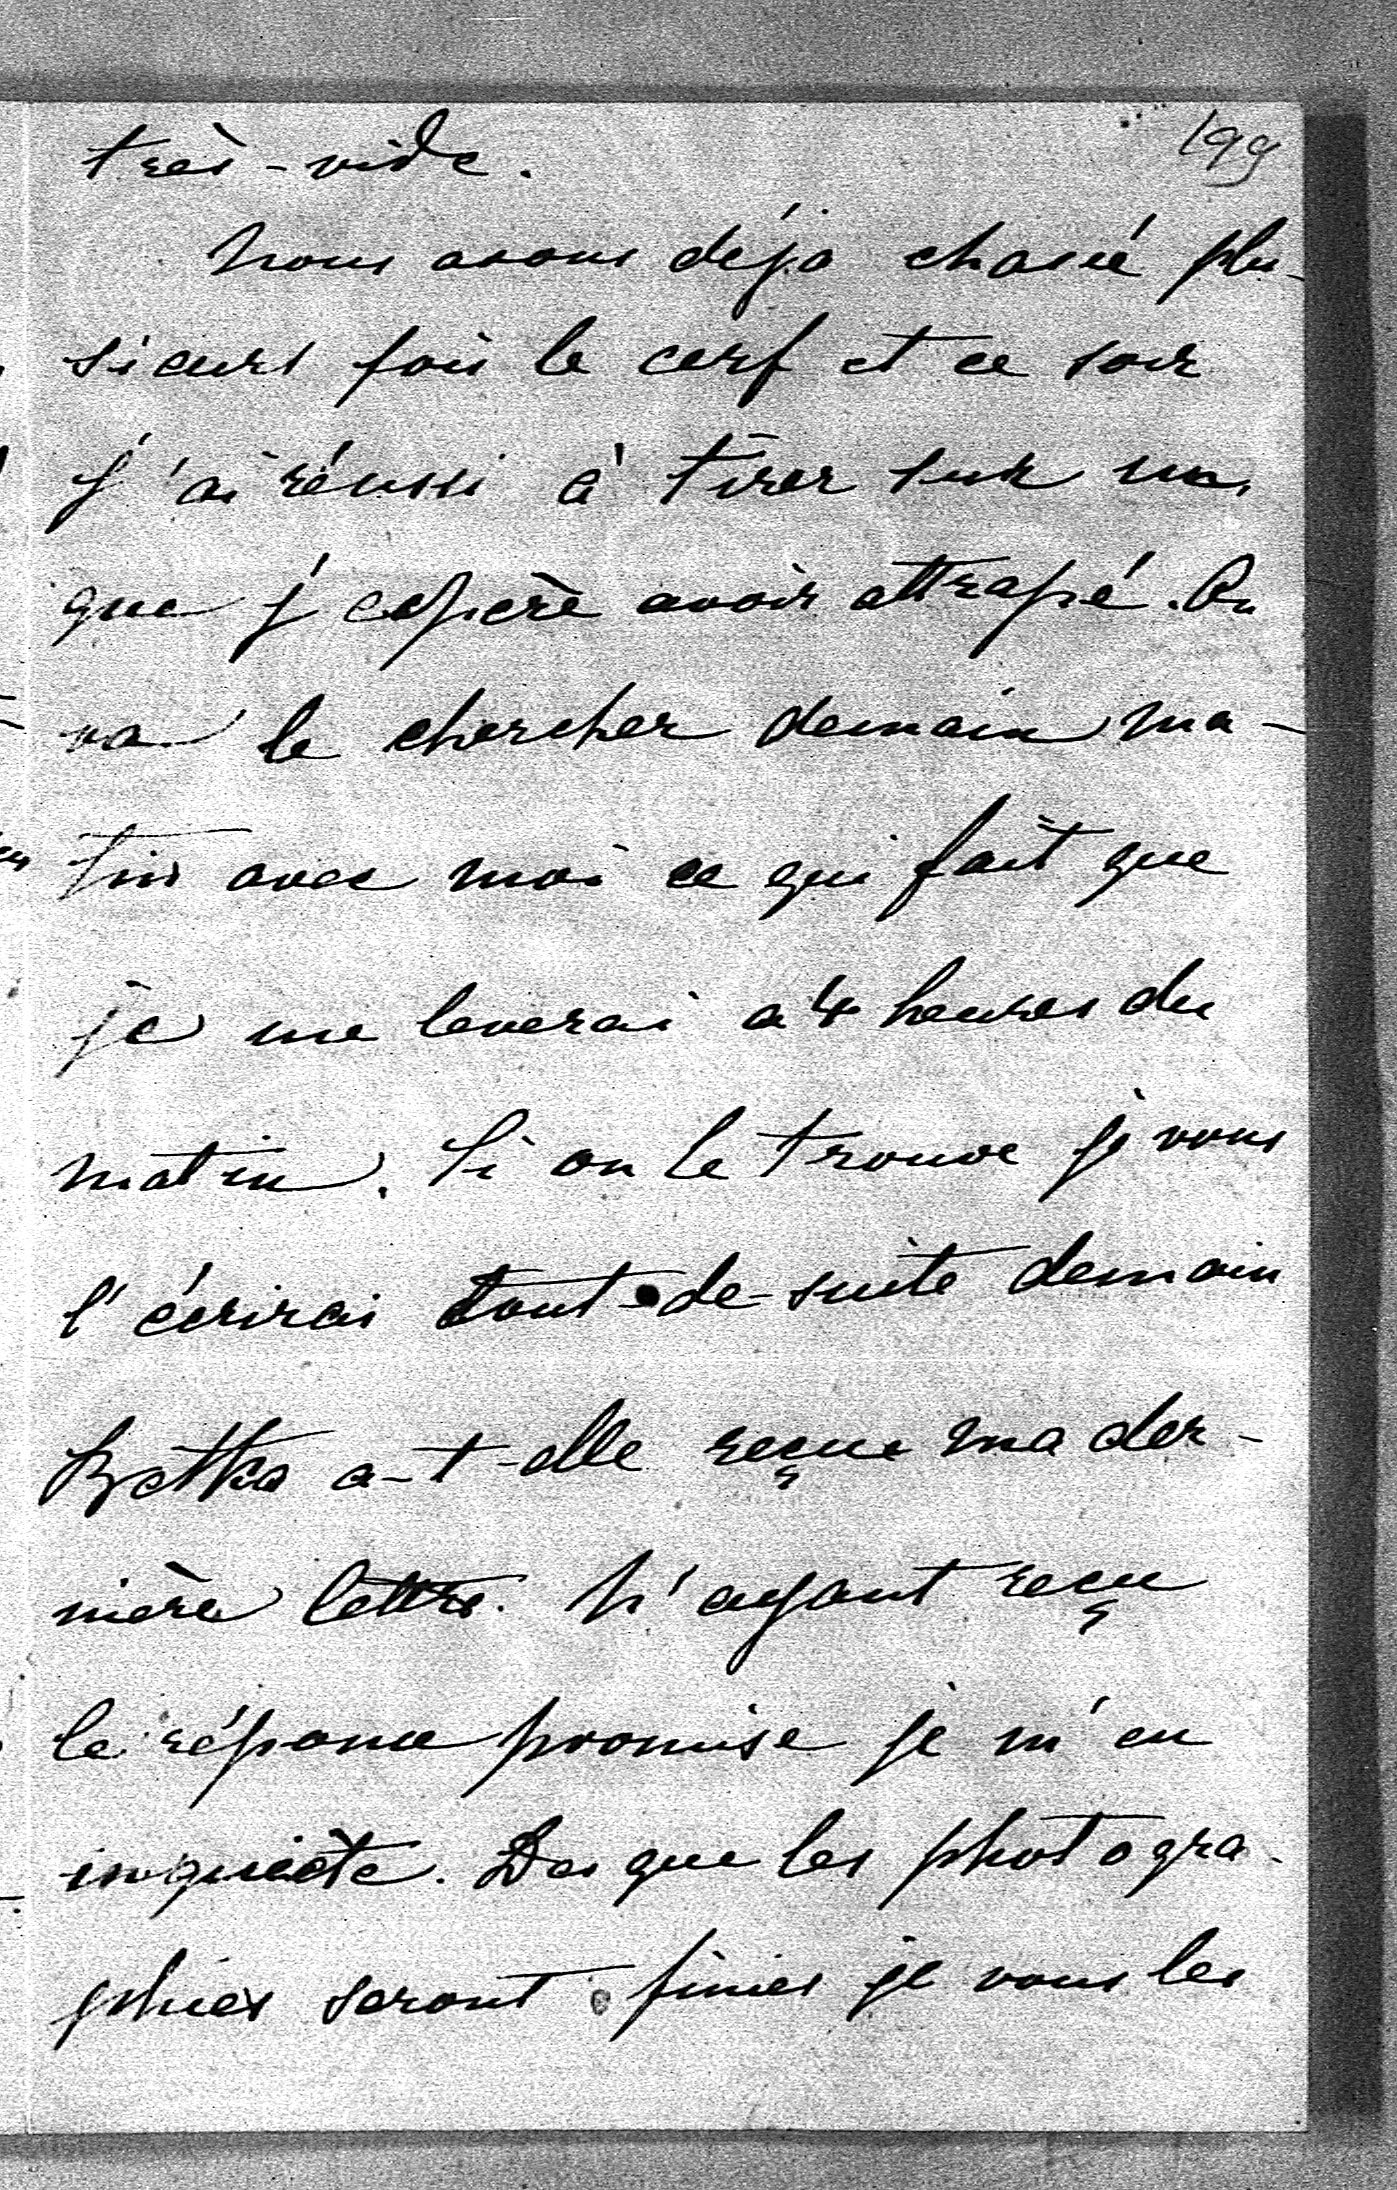 199
très-vide.
Nous avons déja chassé plu-
sieurs fois le cerf et ce soir
j'ai réussi à tirer sur un
que j'espère avoir attrapé. On
va le chercher demain ma-
tin avec moi ce qui fait que
je me leverai a 4 heures du
matin. Si on le trouve je vous
l'écrirai tout-de-suite demain
Betka a-t-elle reçue ma der-
nière lettre. N'ayant reçu
la réponse promise je m'en
inquiète. Des que les photogra-
phies seront finies je vous les